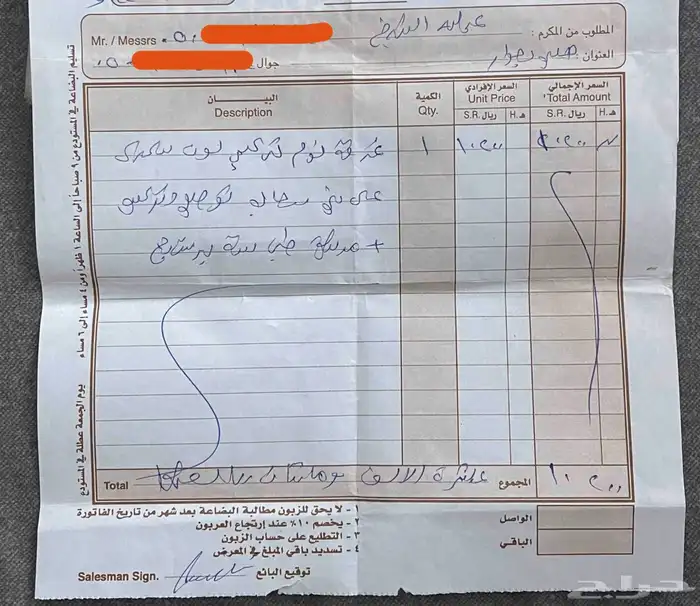 المطلوب من المكرم : عبدالله الشيخ Mr. / Messrs
العنوان : جوال
البيـــان الكمية السعر الإفرادي السعر الإجمالي
Description Qty. Unit Price Total Amount
ريال S.R. هـ H. ريال S.R. هـ H.
غرفة نوم تركي لون سكري ١ ١٠٢٠٠ ١٠٢٠٠
على بني
+ مرتبة طبي
Total عشرة الاف ومائتان ريال فقط المجموع ١٠٢٠٠
١ - لا يحق للزبون مطالبة البضاعة بعد شهر من تاريخ الفاتورة
٢ - يخصم ١٠٪ عند إرتجاع العربون
٣ - التطليع على حساب الزبون
٤ - تسديد باقي المبلغ في المعرض
الواصل
الباقي
Salesman Sign. توقيع البائع
تسليم البضاعة في المستودع من ٩ صباحاً إلى الساعة ١ ظهراً ومن ٤ مساء إلى ٦ مساء
يوم الجمعة عطلة في المستودع
حراج